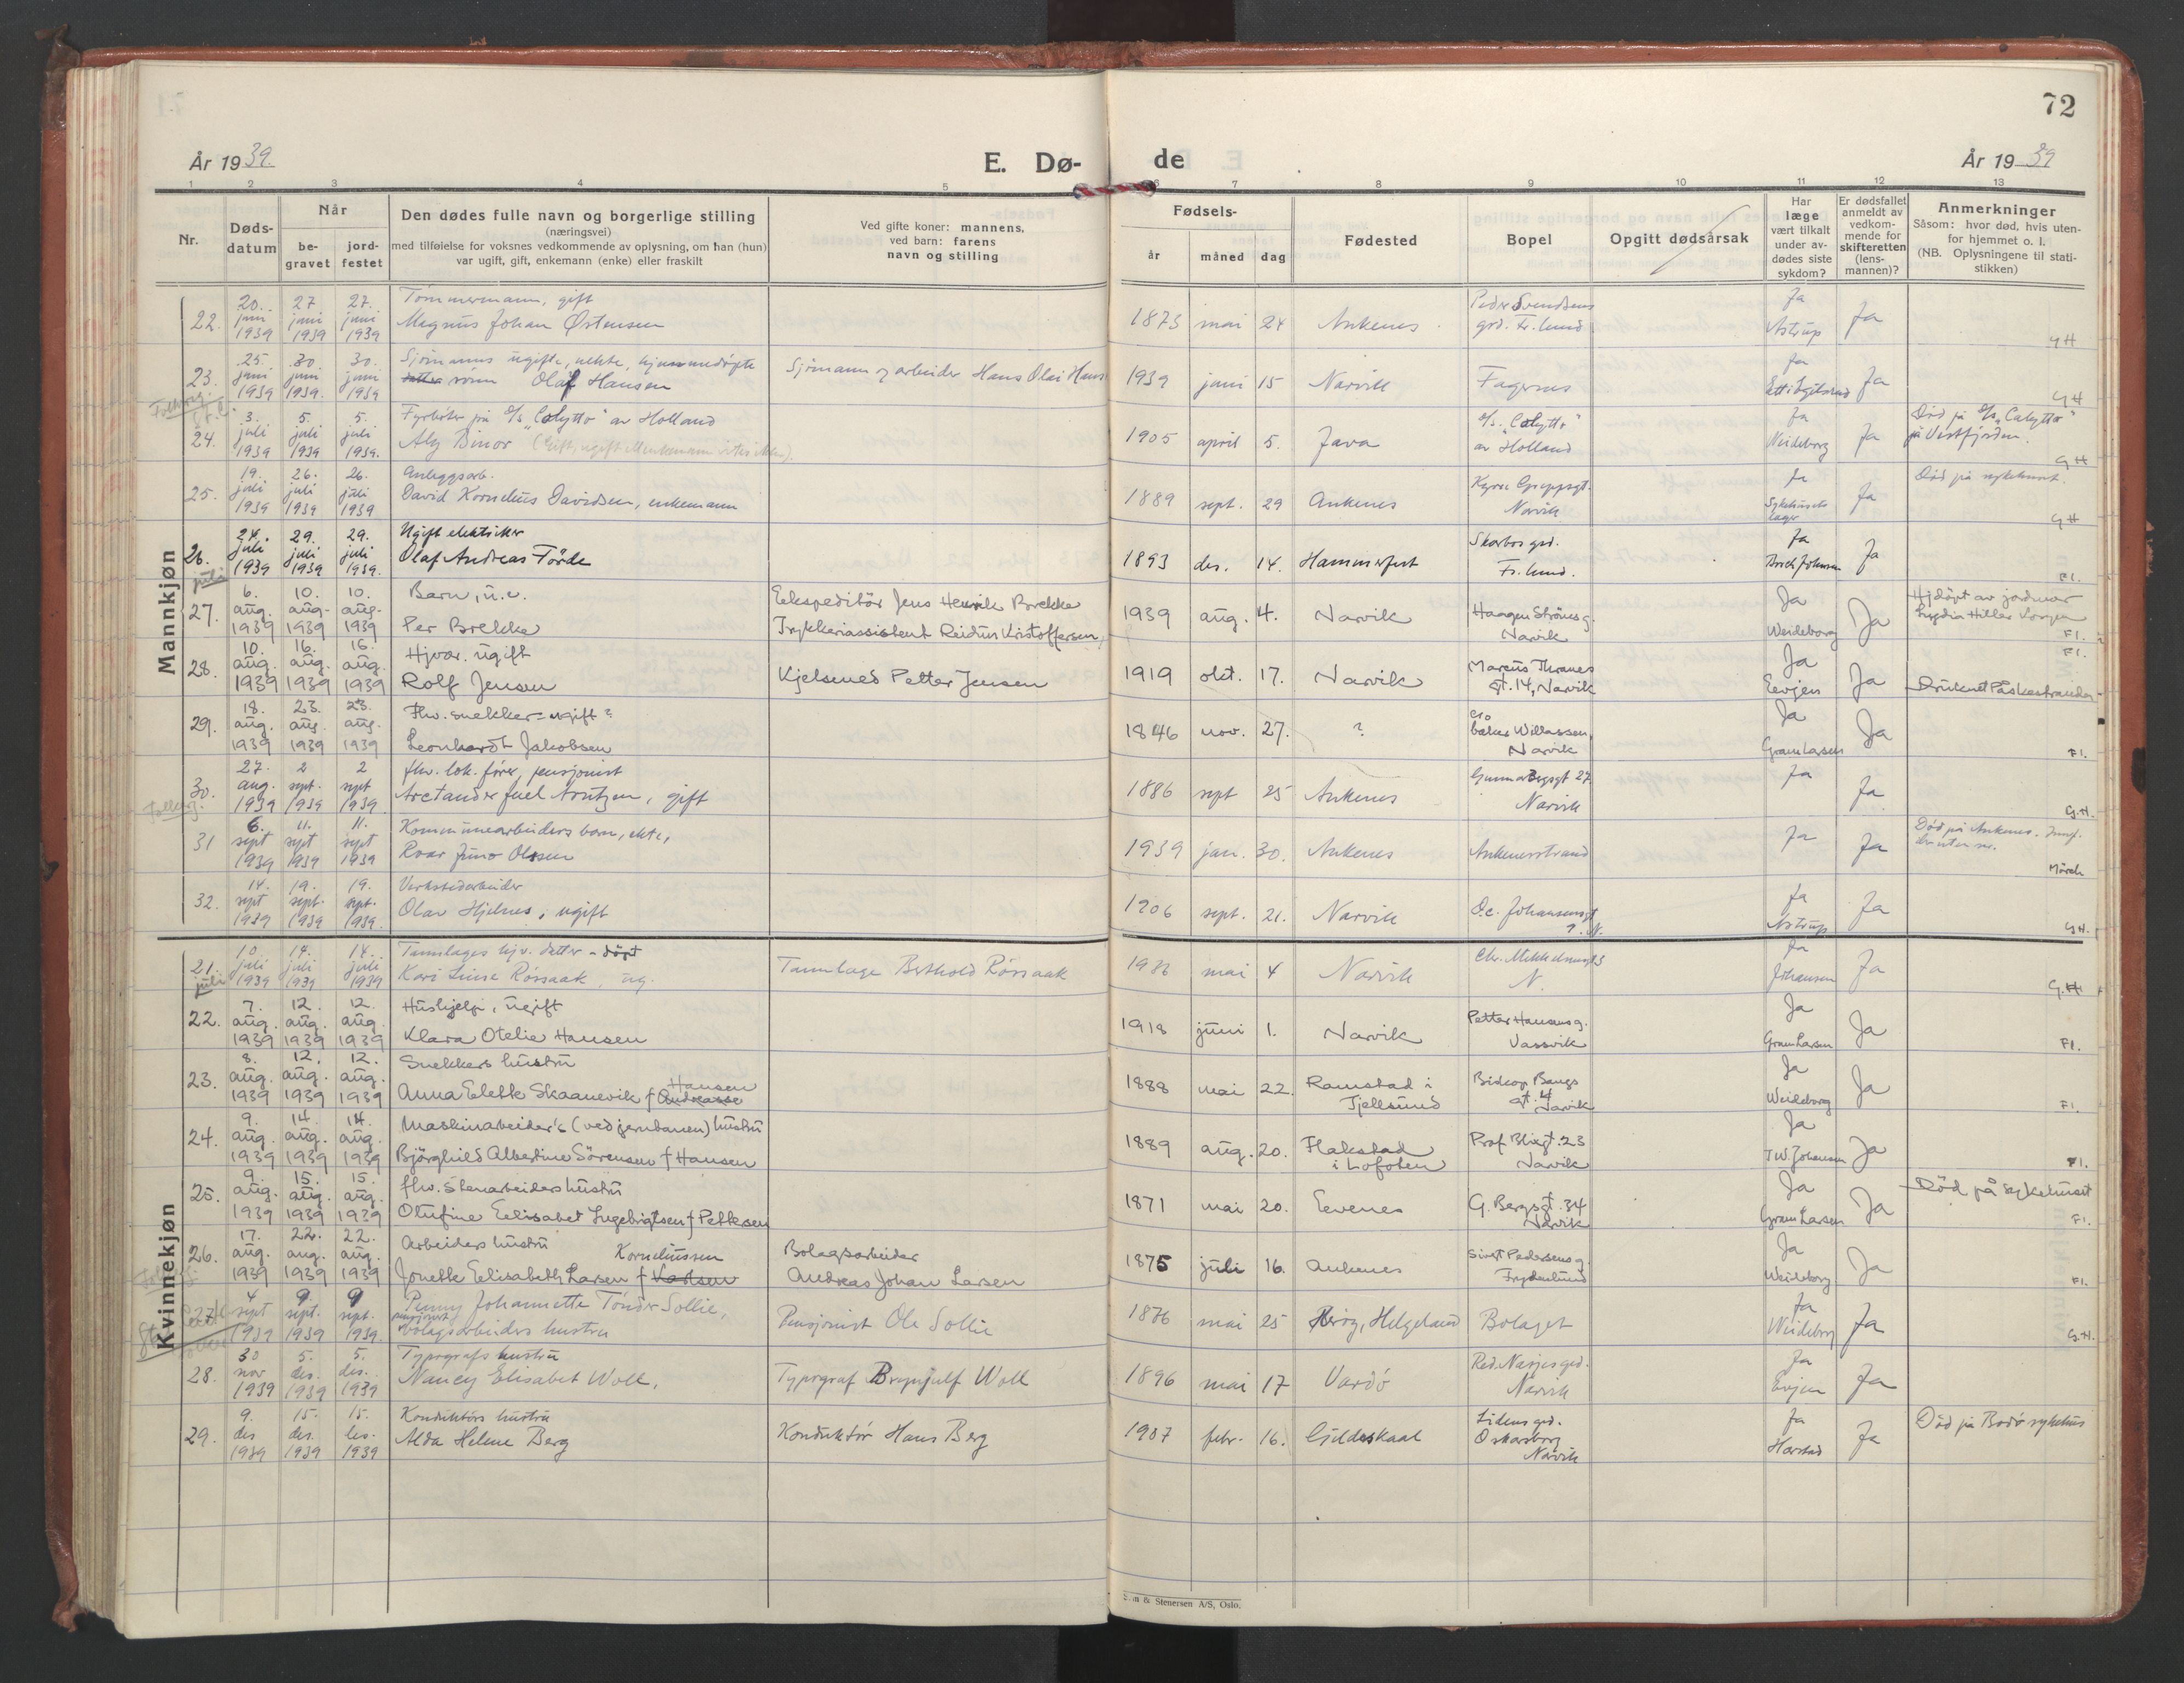 72
År 1939.
E. Dø-
de
År 1939
1 2 3 4 5 6 7 8 9 10 11 12 13
Nr.
Døds-
datum
Når
be-
gravet
jord-
festet
Den dødes fulle navn og borgerlige stilling
(næringsvei)
med tilføielse for voksnes vedkommende av oplysning, om han (hun)
var ugift, gift, enkemann (enke) eller fraskilt
Ved gifte koner: mannens,
ved barn: farens
navn og stilling
Fødsels-
år
måned
dag
Fødested
Bopel
Opgitt dødsårsak
Har
læge
vært tilkalt
under av-
dødes siste
sykdom?
Er dødsfallet
anmeldt av
vedkom-
mende for
skifteretten
(lens-
mannen)?
Anmerkninger
Såsom: hvor død, hvis uten-
for hjemmet o. l.
(NB. Oplysningene til stati-
stikken)
Mannkjøn
20. 27 27. Tømmermann, gift Peder Svendsens Ja
22. juni juni juni Magnus Johan Østensen 1873 mai 24 Ankenes grd. Fr.lund Astrup Ja
1939 1939 1939 G H
25. 30 30. Sjømanns ugifte, hjemmedøpte Ja
23. juni juni juni sønn Olaf Hansen Sjømann og arbeider Hans Olai Hans 1939 juni 15 Narvik Fagernes Ja
1939 1939. 1939 G H
3. 5. 5. Fyrbøter på s/s. "Calytto" av Holland s/s. "Calytto" Ja Død på s/s "Calytto"
24. juli juli juli Aly Binor 1905 april 5. Java av Holland Weideborg Ja på Vestfjorden.
1939 1939 1939. G H
19. 26. 26. Anleggsarb. Ja Død på sykehuset.
25. juli juli juli David Kornelius Davidsen, enkemann 1889 sept. 29 Ankenes Narvik Sykehusets Ja
1939 1939 1939 G H
24. 29. 29. Ugift elektriker Skarbos grd. Ja
26. juli juli juli Olaf Andreas Förde 1893 des. 14. Hammerfest Fr.lund. Ja
1939 1939 1939. Fl.
juli
6. 10. 10. Barn, u.e. Eekspeditör Jens Henrik Brekke Ja Hjdöpt av jordmor
27. aug. aug. aug. Per Brekke Trykkeriassistent Reidun Kristoffersen, 1939 aug. 4. Narvik Haagen Strönesg. Weideborg Ja
1939 1939 1939 Narvik Fl.
10. 16. 16. Hjvær. ugift Marcus Thranes Ja Fl.
28. aug. aug. aug. Rolf Jensen Kjelsmed Petter Jensen 1919 okt. 17. Narvik gt. 14, Narvik Eevjen Ja
1939 1939 1939 Druknet Påskestranden
18. 23. 23. Fhv. snekker - ugift? c/o Ja
29. aug. aug. aug. Leonhardt Jakobsen 1846 nov. 27. ? baker Willassen, Gram Larsen Ja
1939 1939 1939 Narvik Fl.
27. 2 2 fhv. lok. fører, pensjonist Gunnar Bergsgt 27 Ja
30. aug. sept. sept Arctander Juel Arntzen, gift 1886 sept 25 Ankenes Narvik Ja
1939 1939 1939 G.H.
6. 11. 11. Kommunearbeiders barn, ekte, Død på Ankenes.
31 sept sept sept Roar Juno Olssen 1939 jan. 30. Ankenes Ankenesstrand Ja Ja
1939 1939 1939
14. 19. 19. Verkstedarbeider Ja
32. sept sept. sept. Olav Hjelnes, ugift 1906 sept. 21. Narvik O.c. Johansensgt Astrup Ja
1939 1939 1939. G.H.
Kvinnekjøn
10 14. 14. Tannlæges hjv. datter - döpt Ja
21. juli juli juli Kari Luise Rössaak, ug. Tannlæge Berthold Rössaak mai 4 Narvik N. Johansen Ja
juli 1939 1939 1939 G.H.
7. 12. 12. Hushjelp, ugift Petter Hansensg. Ja
22. aug. aug. aug. Klara Otelie Hansen 1918 juni 1. Narvik Vassvik Gram Larsen Ja
1939 1939 1939 Fl.
8. 12. 12. Snekkers hustru Hansen Ja
23. aug. aug. aug. Anna Elette Skaanevik f. Andreasse 1888 mai 22. Ramstad i Biskop Bangs Weideborg Ja
1939 1939 1939 Tjellsund gt. 4 Narvik Fl.
9. 14. 14. Maskinarbeider's (ved jernbanen) hustru Ja
24. aug. aug. aug. Björghild Albertine Sörensen f Hansen 1889 aug. 20. Flakstad Prof. Blixgt. 23 T.W. Johansen Ja
1939 1939 1939 i Lofoten Narvik Fl.
9. 15. 15. fhv. Stenarbeiders hustru Ja Död på sykehuset
25. aug. aug. aug. Olufine Eelisabet Ingebrigtsen f Pettersen 1871 mai 20. Eevenes G. Bergsgt. 34 Gram Larsen Ja
1939 1939 1939 Narvik Fl.
17. 22. 22. Arbeiders hustru Korneliussen Bolagsarbeider Sivert Pedersens g. Ja
26. aug. aug. aug. Jonette Eelisabeth Larsen f Karlsen Andreas Johan Larsen 1875 juli 16. Ankenes Frydenlund Weideborg Ja
1939 1939 1939 Fl.
4 9 9 Penny Johannette Tönder Sollie, Ja
27 sept sept. sept. bolagsarbeiders hustru Pensjonist Ole Sollie 1876 mai 25 Herøy, Helgeland Bolaget Weideborg Ja
1939 1939 1939. G.H.
30 5. 5. Typografs hustru Ja
28. nov des. des. Nancy Elisabet Woll, Typograf Brynjulf Woll 1896 mai 17 Vardö Narvik Evjen Ja
1939 1939 1939
9. 15. 15. Konduktørs hustru Lidens grd. Ja Død på Bodö sykehus
29. des des. des. Alda Helene Berg Konduktør Hans Berg 1907 febr. 16. Gildeskaal Oskarsborg Harstad Ja
1939 1939 1939 Narvik
& Stenersen A/S, Oslo.